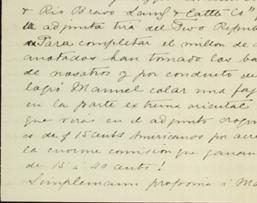 & Rio Bravo Land & Cattle Co"
la adjunta tira del Two Republ
Para completar el millon de a
anotados han tomado las ba
de nosotros y por conducto de
Manuel calar una faj
en la parte extrema oriental
que verás en el adjunto croqu
es de $ 15 cents Americanos por acre
la enorme comisión que ganan
de 15 á 20 cents!
á Ma